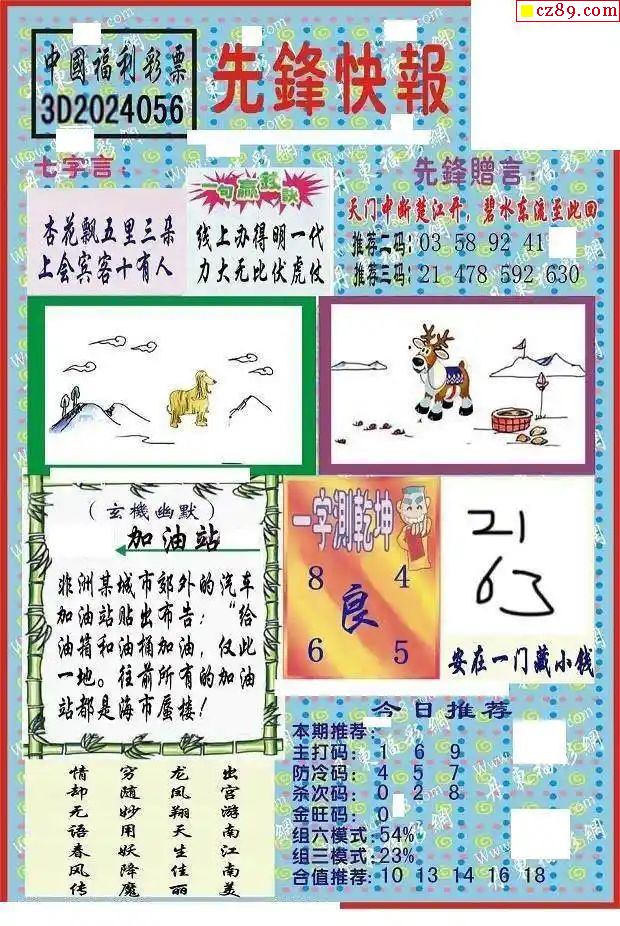 cz89.com
中國福利彩票
3D2024056
先鋒快報
七字言:
杏花飘五里三朵
上会宾客十有人
一句赢
诀
线上办得明一代
力大无比伏虎仗
先鋒贈言:
天门中断楚江开,碧水东流至此回
推荐二码: 03 58 92 41
推荐三码: 21 478 592 630
(玄機幽默)
加油站
非洲某城市郊外的汽车
加油站贴出布告:“给
油箱和油桶加油,仅此
一地。往前所有的加油
站都是海市蜃楼!
一字測乾坤
8 4
良
6 5
21
63
安在一门藏小钱
今日推荐
本期推荐:
主打码: 1 6 9
防冷码: 4 5 7
杀次码: 0 2 8
金旺码: 0
组六模式:54%
组三模式:23%
合值推荐:10 13 14 16 18
情却无语春风传
穷随妙用妖降魔
龙凤翔天生佳丽
出宫游南江南美